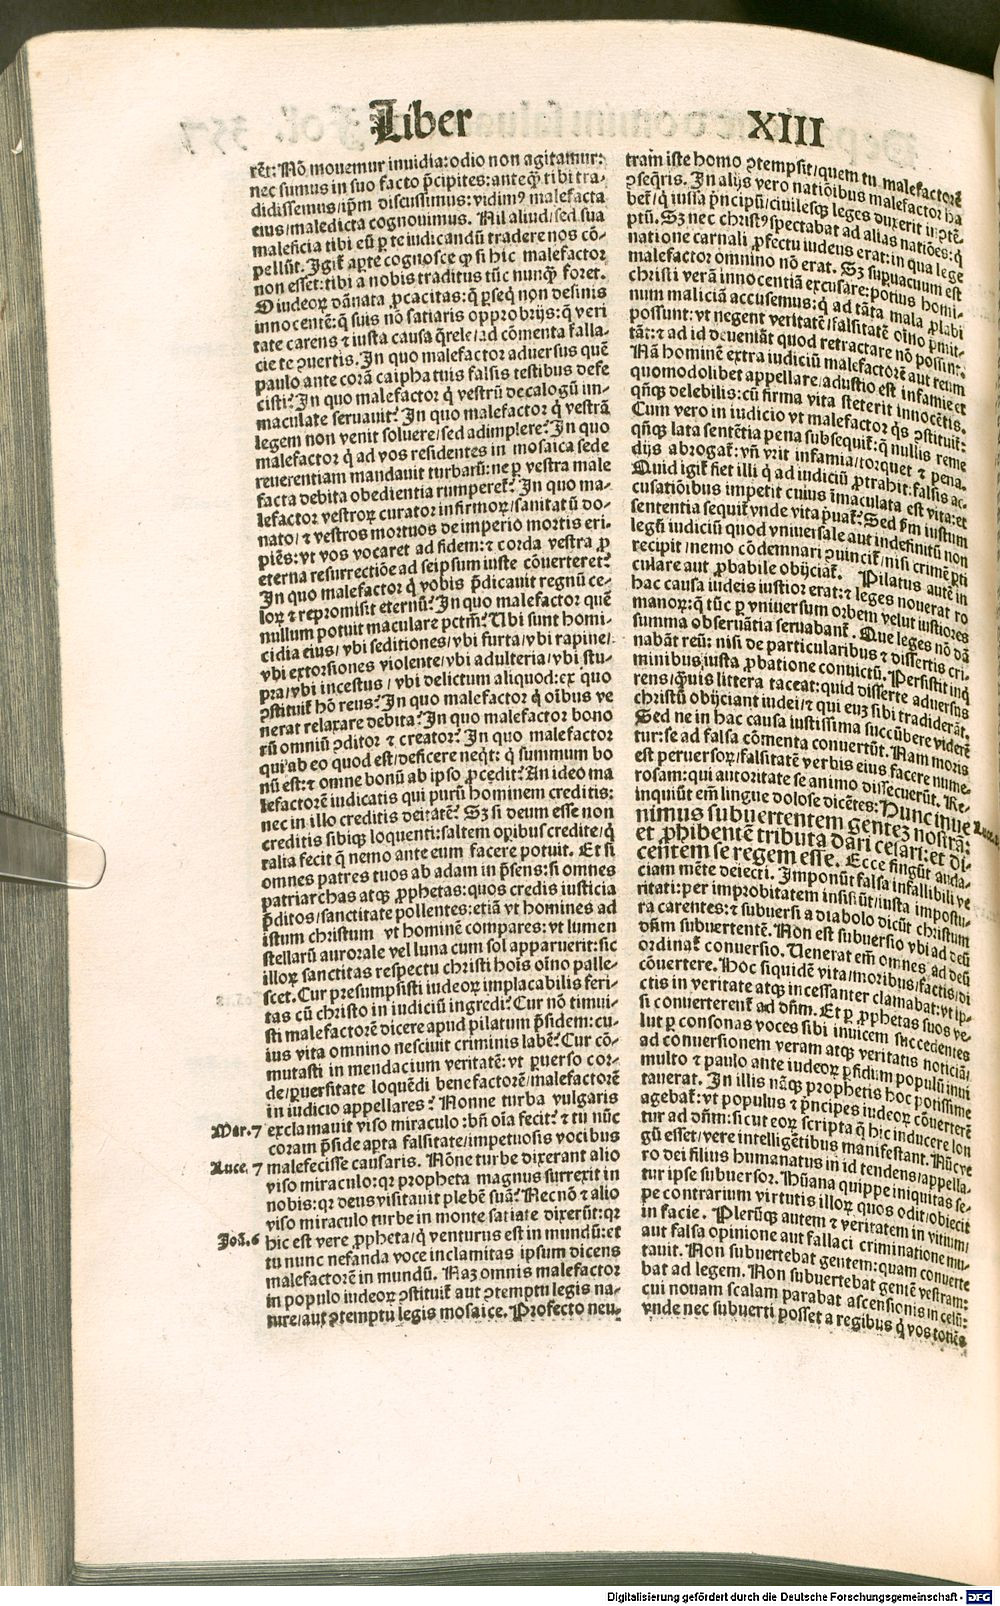 Liber XIII
rēt: Nō mouemur inuidia: odio non agitamur:
nec sumus in suo facto p̄cipites: anteq̄ tibi tra-
didissemus/ ip̄m discussimus: vidimꝰ malefacta
eius/ maledicta cognouimus. Nil aliud/ sed sua
maleficia tibi eū ꝑ te iudicandū tradere nos cō-
pellūt. Igit᷑ aꝑte cognosce ꝙ si hic malefactor
non esset: tibi a nobis traditus tūc nunq̄ foret.
O iudeoꝝ dānata ꝓcacitas: q̄ ꝑseq̄ non desinis
innocentē: q̄ suis nō satiaris opprobrijs: q̄ veri
tate carens ⁊ iusta causa q̄rele/ ad cōmenta falla-
cie te ꝯuertis. In quo malefactor aduersus quē
paulo ante corā caipha tuis falsis testibus defe
cisti? In quo malefactor q̇ vestrū decalogū im-
maculate seruauit? In quo malefactor q̇ vestrā
legem non venit soluere/ sed adimplere? In quo
malefactor q̇ ad vos residentes in mosaica sede
reuerentiam mandauit turbarū: ne ꝑ vestra male
facta debita obedientia rumperet᷑? In quo ma-
lefactor vestroꝝ curator infirmoꝝ/ sanitatū do-
nato/ ⁊ vestros mortuos de imperio mortis eri-
piēs: vt vos vocaret ad fidem: ⁊ corda vestra ꝓ
eterna resurrectiōe ad seipsum iuste cōuerteret?
In quo malefactor q̇ vobis p̄dicauit regnū ce-
loꝝ ⁊ repromisit eternū? In quo malefactor quē
nullum potuit maculare pctm̄? Ubi sunt homi-
cidia eius/ vbi seditiones/ vbi furta/ vbi rapine/
vbi extorsiones violente/ vbi adulteria/ vbi stu-
pra/ vbi incestus / vbi delictum aliquod: ex quo
ꝯstituit᷑ hō reus? In quo malefactor q̇ oībus ve
nerat relaxare debita? In quo malefactor bono
rū omniū ꝯditor ⁊ creator? In quo malefactor
qui ab eo quod est/ deficere neq̇t: q̇ summum bo
nū est: ⁊ omne bonū ab ipso ꝓcedit? An ideo ma
lefactorē iudicatis qui purū hominem creditis:
nec in illo creditis deitatē? Sꝫ si deum esse non
creditis sibiqꝫ loquenti: saltem oꝑibus credite/ q̇
talia fecit q̄ nemo ante eum facere potuit. Et si
omnes patres tuos ab adam in p̄sens: si omnes
patriarchas atqꝫ ꝓphetas: quos credis iusticia
p̄ditos/ sanctitate pollentes: etiā vt homines ad
istum christum vt hominē compares: vt lumen
stellarū aurorale vel luna cum sol apparuerit: sic
illoꝝ sanctitas respectu christi hoīs oīno palle-
scet. Cur presumpsisti iudeoꝝ implacabilis feri-
tas cū christo in iudiciū ingredi? Cur nō timui-
sti malefactorē dicere apud pilatum p̄sidem: cu-
ius vita omnino nesciuit criminis labē? Cur cō-
mutasti in mendacium veritatē: vt ꝑuerso cor-
de/ ꝑuersitate loquēdi benefactorē/ malefactorē
in iudicio appellares? Nonne turba vulgaris
Mar. 7 exclamauit viso miraculo: bn̄ oīa fecit? ⁊ tu nūc
coram p̄side aꝑta falsitate/ impetuosis vocibus
Luce. 7 malefecisse causaris. Nōne turbe dixerant alio
viso miraculo: qꝛ propheta magnus surrexit in
nobis: qꝛ deus visitauit plebē suā? Necnō ⁊ alio
viso miraculo turbe in monte satiate dixerūt: qꝛ
Joā. 6 hic est vere ꝓpheta/ q̇ venturus est in mundū: et
tu nunc nefanda voce inclamitas ipsum dicens
malefactorē in mundū. Naꝫ omnis malefactor
in populo iudeoꝝ ꝯstituit᷑ aut ꝯtemptu legis na-
ture/ aut ꝯtemptu legis mosaice. Profecto neu-
tram iste homo ꝯtempsit/ quem tu malefactorē
ꝯseq̄ris. In alijs vero natiōibus malefactor ha
bet᷑/ q̇ iussa p̄ncipū/ ciuilesqꝫ leges duxerit in ꝯtē-
ptū. Sꝫ nec christꝰ spectabat ad alias natiōes: q̇
natione carnali ꝓfectu iudeus erat: in qua lege
malefactor omnino nō erat. Sꝫ suꝑuacuum est
christi verā innocentiā excusare: potius homi-
num maliciā accusemus: q̇ ad tāta mala ꝓlabi
possunt: vt negent veritatē/ falsitatē oīno ꝓmit-
tāt: ⁊ ad id deueniāt quod retractare nō possint.
Nā hominē extra iudiciū malefactorē aut reum
quomodolibet appellare/ adustio est infamie et
qn̄qꝫ delebilis: cū firma vita steterit innocētis.
Cum vero in iudicio vt malefactor q̇s ꝯstituit᷑:
qn̄qꝫ lata sentētia pena subsequit᷑: q̄ nullis reme
dijs abrogat᷑: vn̄ vrit infamia/ torquet ⁊ pena.
Quid igit᷑ fiet illi q̇ ad iudiciū ꝓtrahit᷑: falsis ac-
cusatiōibus impetit᷑ cuius īmaculata est vita: et
sententia sequit᷑ vnde vita ꝑuat᷑? Sed ẜm iustum
legū iudiciū quod vniuersale aut indefinitū non
recipit/ nemo cōdemnari ꝯuincit᷑/ nisi crimē ꝑti
culare aut ꝓbabile obijciat᷑. Pilatus autē in
hac causa iudeis iustior erat: ⁊ leges nouerat ro
manoꝝ: q̄ tūc ꝑ vniuersum orbem velut iustiores
summa obseruātia seruabant᷑. Que leges nō dā
nabāt reū: nisi de particularibus ⁊ dissertis cri-
minibus iusta ꝓbatione conuictū. Persistit inq̄
rens/ q̄uis littera taceat: quid disserte aduersus
christū obijciant iudei/ ⁊ qui euꝫ sibi tradiderāt.
Sed ne in hac causa iustissima succūbere viderē
tur: se ad falsa cōmenta conuertūt. Nam moris
est peruersoꝝ/ falsitatē verbis eius facere nume-
rosam: qui autoritate se animo dissecuerūt. Re-
inquiūt em̄ lingue dolose dicētes: Hunc inue
nimus subuertentem genteꝫ nostrā:
et ꝓhibentē tributa dari cesari: et di-
centem se regem esse. Ecce fingūt auda-
ciam mēte deiecti. Imponūt falsa infallibili ve
ritati: per improbitatem insistūt/ iusta impostu-
ra carentes: ⁊ subuersi a diabolo dicūt christum
dn̄m subuertentē. Non est subuersio vbi ad deū
ordinat᷑ conuersio. Uenerat em̄ omnes ad deū
cōuertere. Hoc siquidē vita/ moribus/ factis/ di
ctis in veritate atqꝫ incessanter clamabat: vt ip-
si conuerterent᷑ ad dn̄m. Et ꝑ ꝓphetas suos ve-
lut ꝑ consonas voces sibi inuicem succedentes
ad conuersionem veram atqꝫ veritatis noticiā/
multo ⁊ paulo ante iudeoꝝ ꝑfidum populū inui
tauerat. In illis nāqꝫ prophetis hoc potissime
agebat᷑: vt populus ⁊ p̄ncipes iudeoꝝ cōuerterē
tur ad dn̄m: sicut eoꝝ scripta q̄ hic inducere lon
gū esset/ vere intelligētibus manifestant. Nūc ve
ro dei filius humanatus in id tendens/ appella-
tur ipse subuersor. Hūana quippe iniquitas se-
pe contrarium virtutis illoꝝ quos odit/ obiecit
in facie. Plerūqꝫ autem ⁊ veritatem in vitium/
aut falsa opinione aut fallaci criminatione mu-
tauit. Non subuertebat gentem: quam conuerte
bat ad legem. Non subuertebat gentē vestram:
cui nouam scalam parabat ascensionis in celū:
vnde nec subuerti posset a regibus q̇ vos totiēs
Digitalisierung gefördert durch die Deutsche Forschungsgemeinschaft - DFG